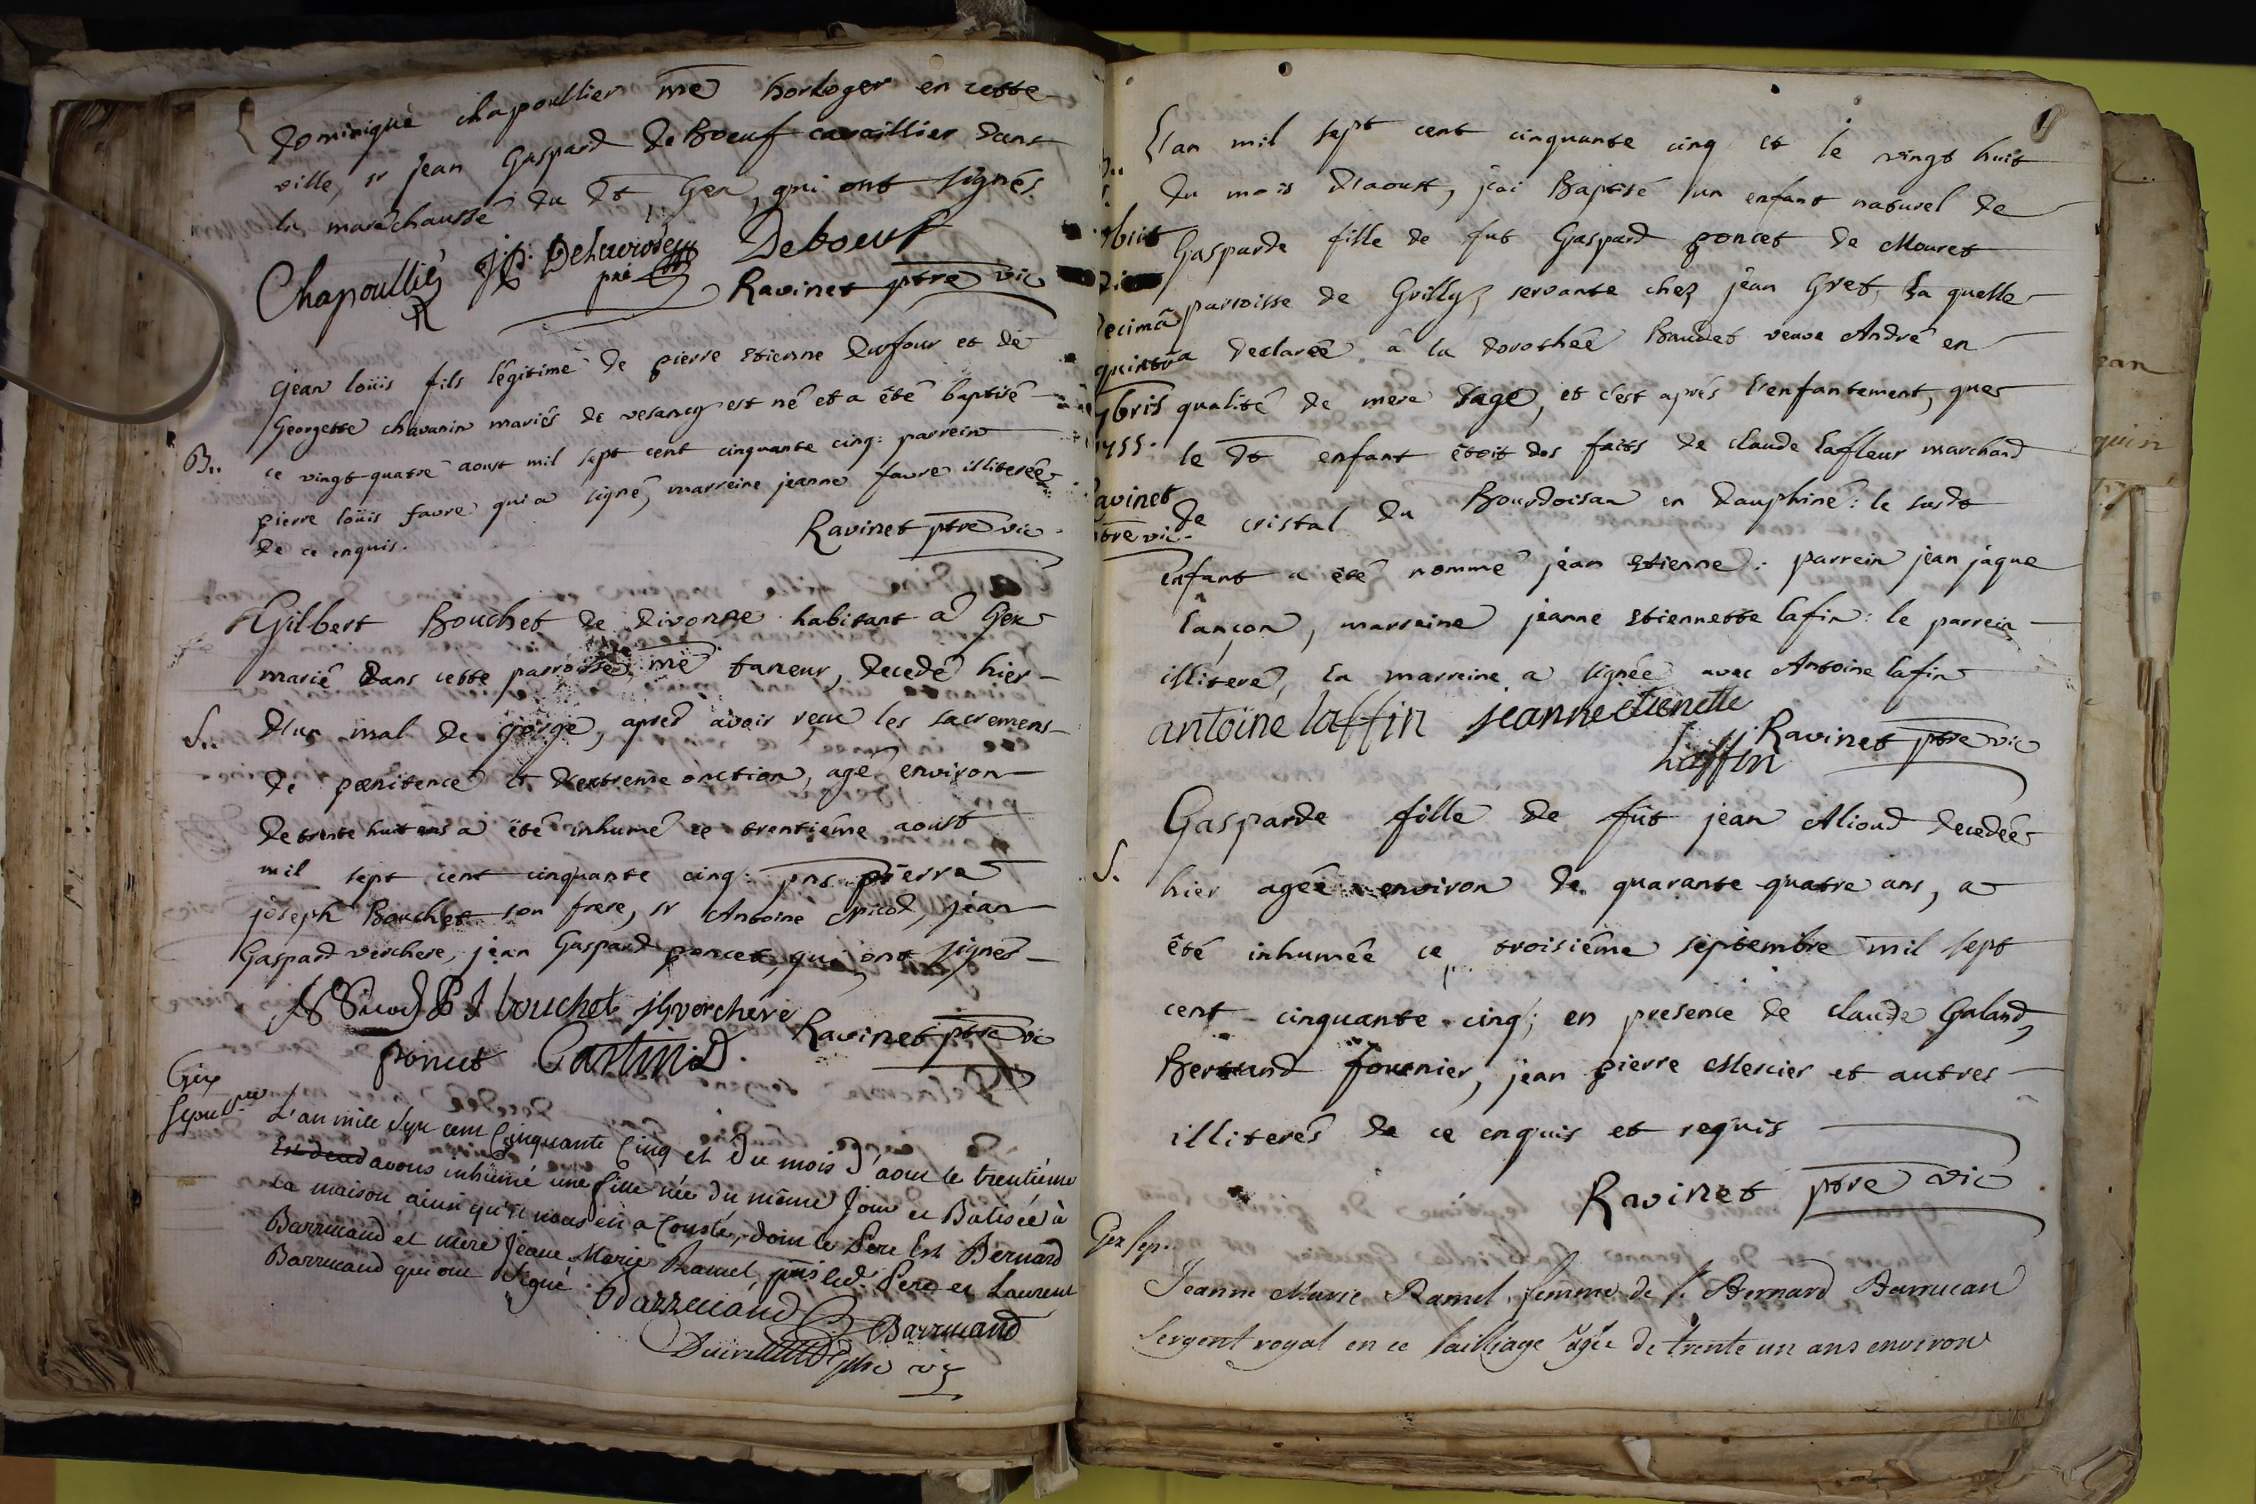 Dominique chapoullier me horloger en cette
ville, sr jean Gaspard De Boeuf cavaillier dans
la marêchaussé du dt Gex, qui ont signés
Chapoullié Deboeuf
Ravinet ptre vic
jean loüis fils légitime de pierre Etienne Dufour et de
Georgette chavanin mariés de vesancy est né et a été baptisé
B.. ce vingt-quatre aoust mil sept cent cinquante cinq: parrein
pierre loüis favre qui a signé, marreine jeanne favre illiterée
de ce enquis.
Ravinet ptre vic
Gilbert Bouchet de Divonne habitant à Gex
marié Dans cette parroisse, me taneur, decedé hier
S.. d'un mal de gorge, apres avoir reçu les sacremens
de pœnitence et d'extreme onction, agé environ
de trente huit ans a été inhumé ce trentiéme aoust
mil sept cent cinquante cinq: pns pierre
joseph Bouchet son frere, sr Antoine Nicod, jean
Gaspard verchere, jean Gaspard poncet, qui ont signés
P J bouchet jgverchere
Ravinet ptre vic
poncet
Gex
Sepulre
L'an mille Sept cent Cinquante Cinq et Du mois D'aout le trentiéme
avons inhumé une fille née du même Jour et Batisée à
la maison ainsi qu'il nous en a Consté, dont le Pere Est Bernard
Barrucand et mere Jeane Marie Ramel, pns led. Pere et Laurent
Barrucand qui ont Signé.
Barrucand Barrucand
ptre vic
L'an mil sept cent cinquante cinq et le vingt huit
du mois d'aoust, j'ai Baptisé un enfant naturel de
Gasparde fille de fut Gaspard poncet de Mouret
parroisse de Grilly, servante chez jean Gret, la quelle
a declarée à la dorothée Baudet veuve André en
qualité de mere sage, et c'est aprés l'enfantement, que
le dt enfant étoit des faits de claude lafleur marchand
de cristal du Bourdoisan en dauphiné: le susdt
enfant a été nommé jean Etienne: parrein jean jaque
lançon, marreine jeanne Etiennette lafin: le parrein
illiteré, la marreine a signée avec Antoine lafin
decima
quinta
9bris
1755.
Ravinet
ptre vic.
antoine laffin jeanne etienette
laffin
Ravinet ptre vic
Gasparde fille de fût jean Alioud decedée
S. hier agée environ de quarante quatre ans, a
été inhumée ce troisiéme septembre mil sept
cent cinquante cinq; en presence de claude Galand,
Bertrand fournier, jean pierre Mercier et autres
illiterés de ce enquis et requis
Ravinet ptre vic
Gex sep.
Jeanne Marie Ramel femme de sr Bernard Barrucan
Sergent royal en ce bailliage agée de trente un ans environ